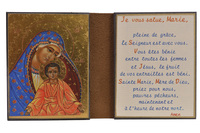 Je vous salue, Marie,
pleine de grâce,
le Seigneur est avec vous.
Vous êtes bénie
entre toutes les femmes
et Jésus, le fruit
de vos entrailles est béni.
Sainte Marie, Mère de Dieu,
priez pour nous,
pauvres pécheurs,
maintenant et
à l'heure de notre mort.